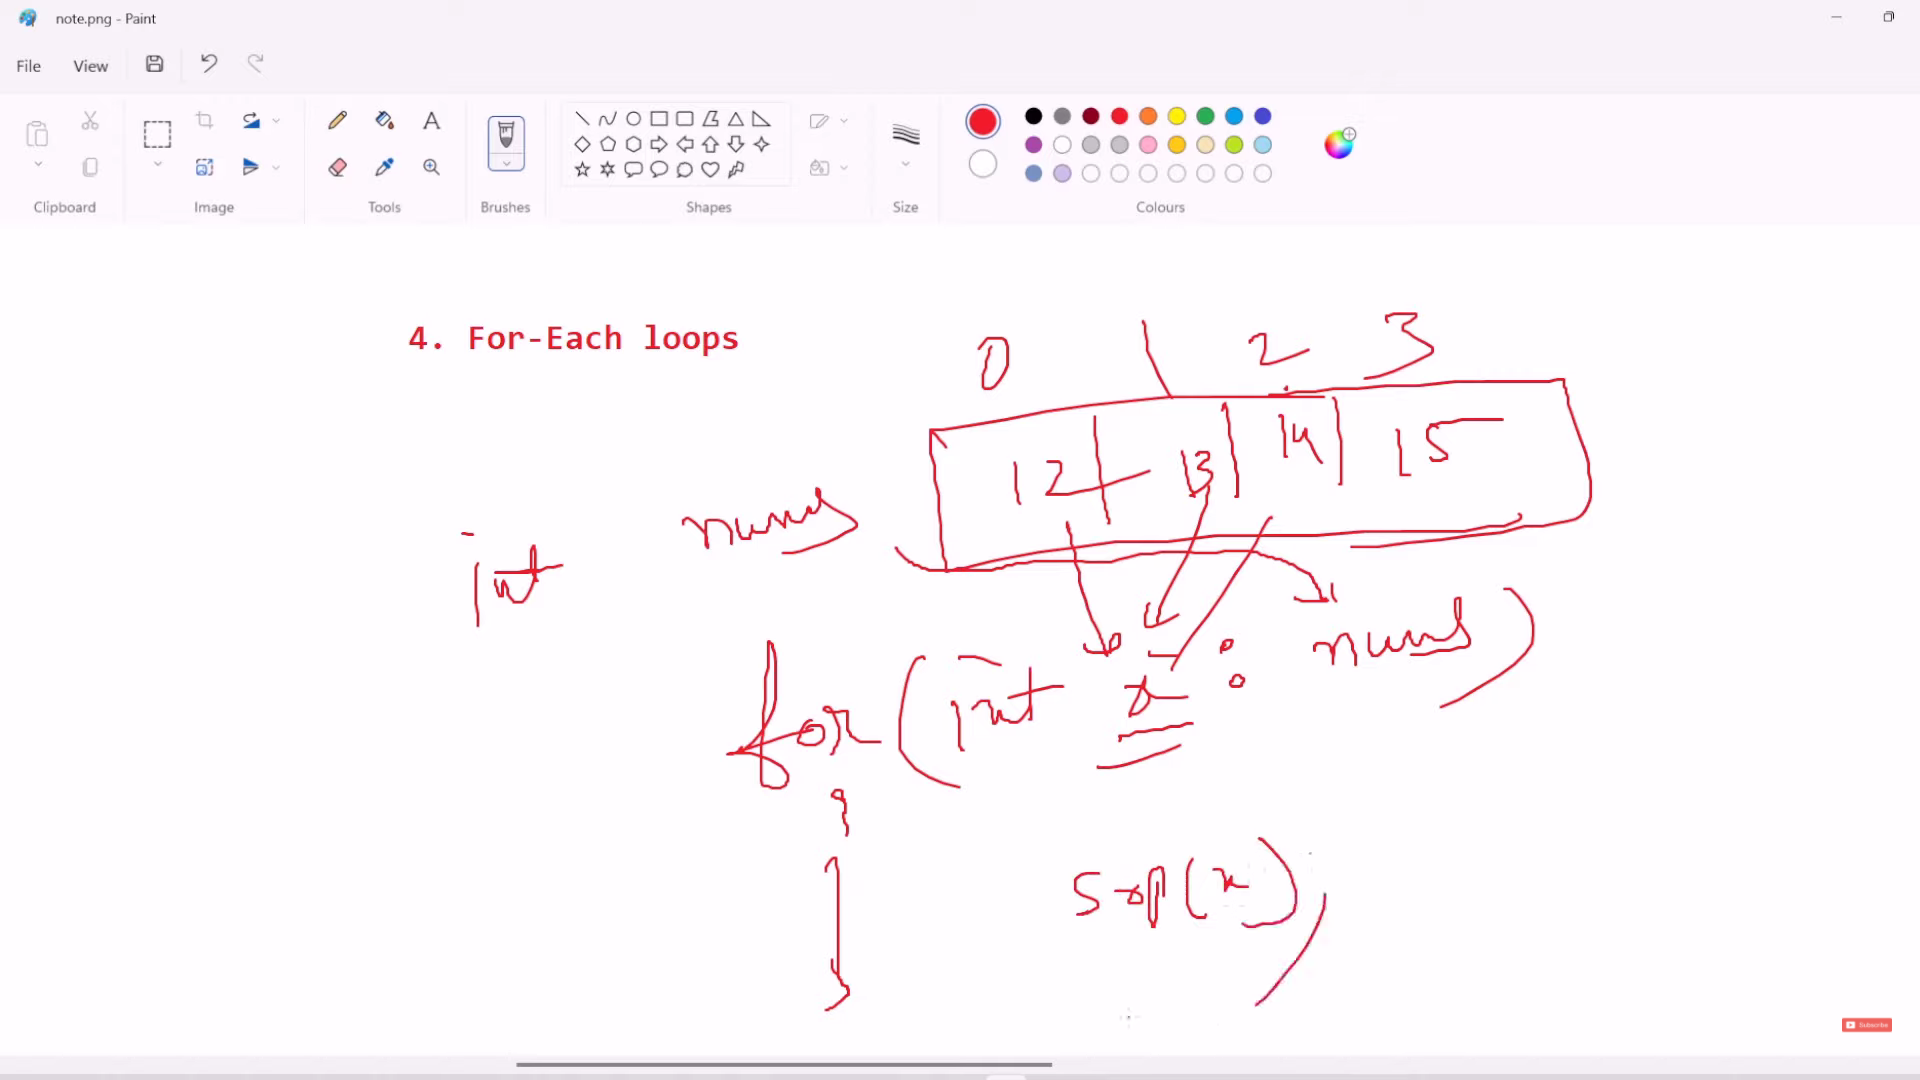 note.png - Paint
File View
Clipboard Image Tools Brushes Shapes Size Colours
4. For-Each loops
0 1 2 3
12 13 14 15
nums
int
for (int x : nums)
{
Sop(x)
}
Subscribe